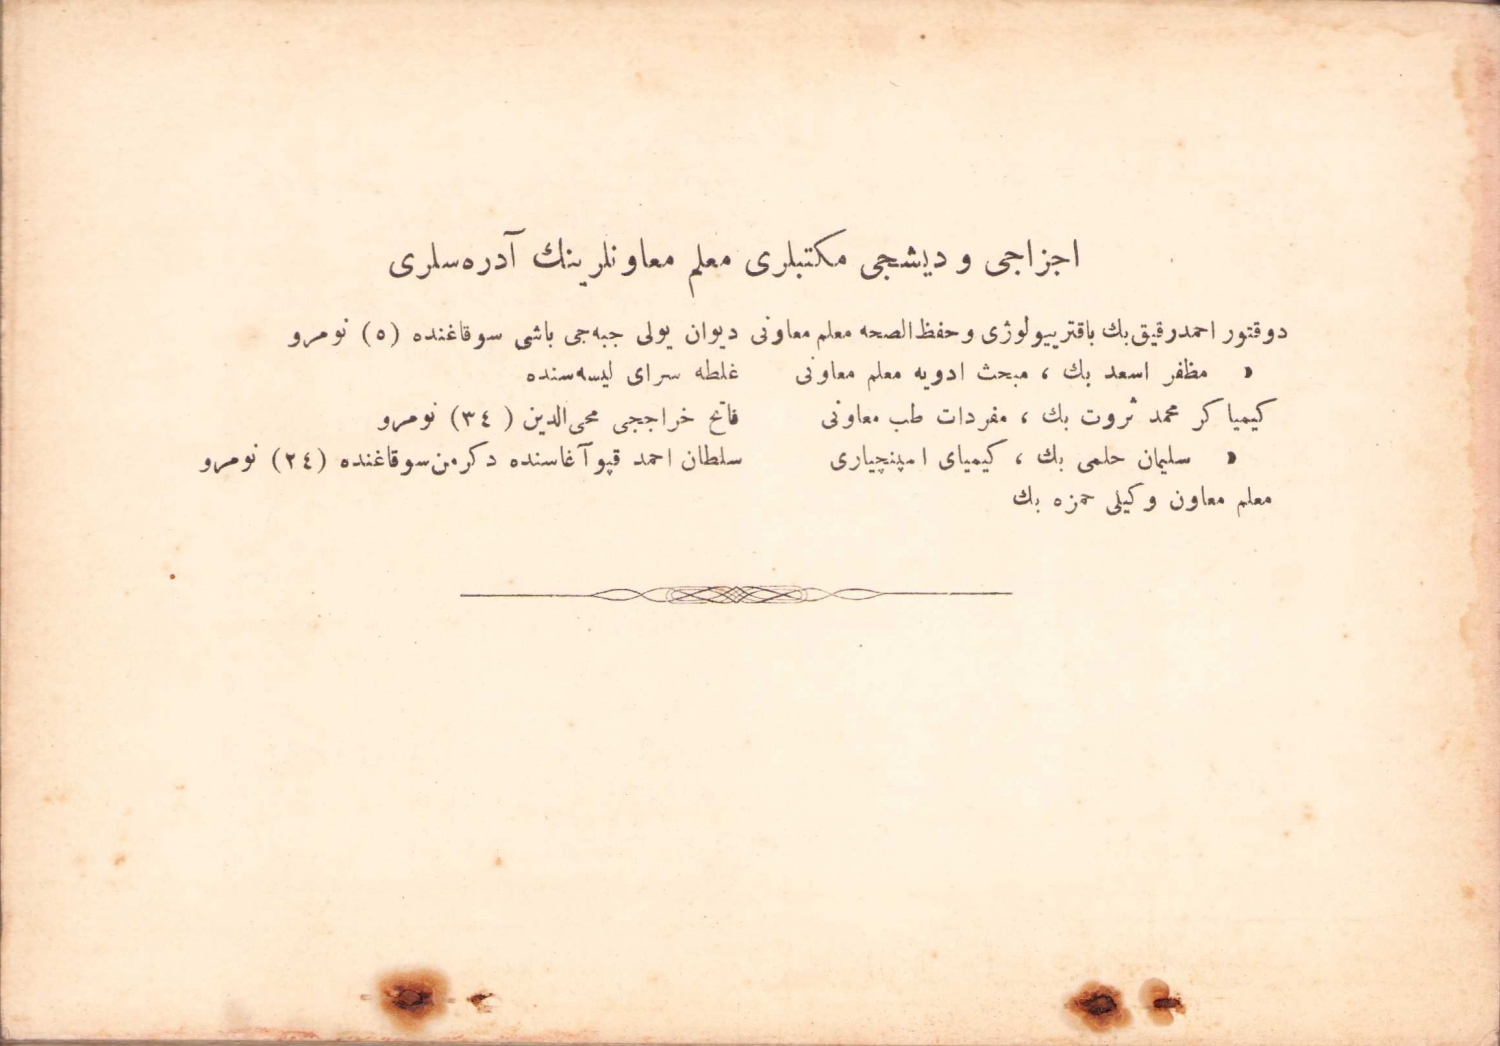 اجزاجی و دیشجی مکتبلری معلم معاونلرینك آدره‌سلری
دوقتور احمدرفیق‌بك باقتریيولوژی وحفظ‌الصحه معلم معاونی دیوان یولی جبه‌جی باشی سوقاغنده (٥) نومرو
» مظفر اسعد بك ، مبحث ادویه معلم معاونی غلطه سرای لیسه‌سنده
کیمیاکر محمد ثروت بك ، مفردات طب معاونی فاتح خراججی محی‌الدین (٣٤) نومرو
» سلیمان حلمی بك ، کیمیای اسپنچیاری سلطان احمد قپوآغاسنده دکرمن‌سوقاغنده (٢٤) نومرو
معلم معاون وکیلی حمزه بك